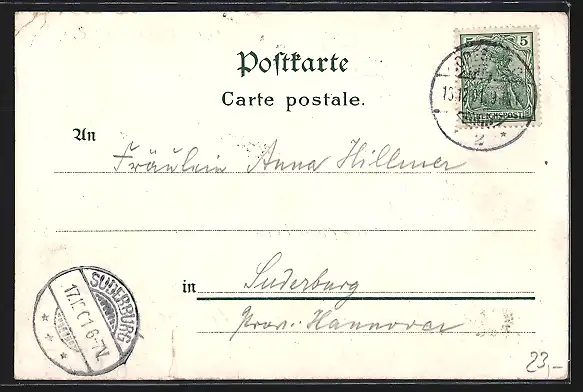 Postkarte
Carte postale.
5 5
REICHSPOST
2
An
Fräulein Anna Hillmer
in Suderburg
Prov. Hannover
SUDERBURG
17.1.01 6-7V.
23,-